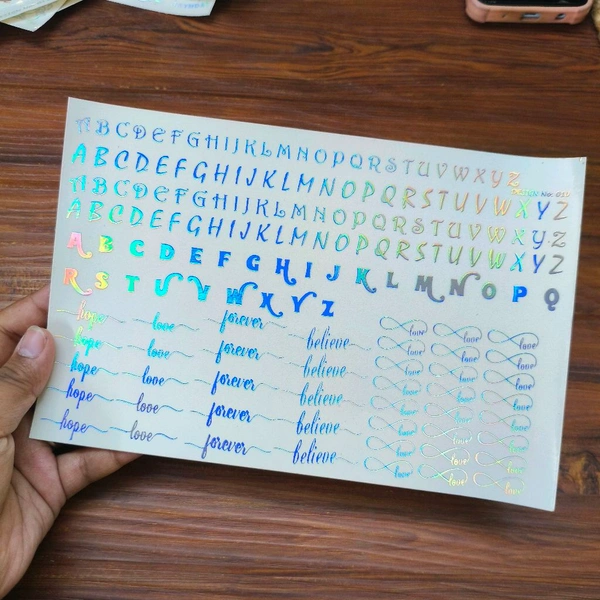 ABCDEFGHIJKLMNOPQRSTUVWXYZ
ABCDEFGHIJKLMNOPQRSTUVWXYZ
ABCDEFGHIJKLMNOPQRSTUVWXYZ
ABCDEFGHIJKLMNOPQRSTUVWXYZ
A B C D E F G H I J K L M N O P Q
R S T U V W X Y Z
hope love forever believe love love love
hope love forever believe love love love
hope love forever believe love love love
hope love forever believe love love love
hope love forever believe love love love
love love love
love love love
love love love